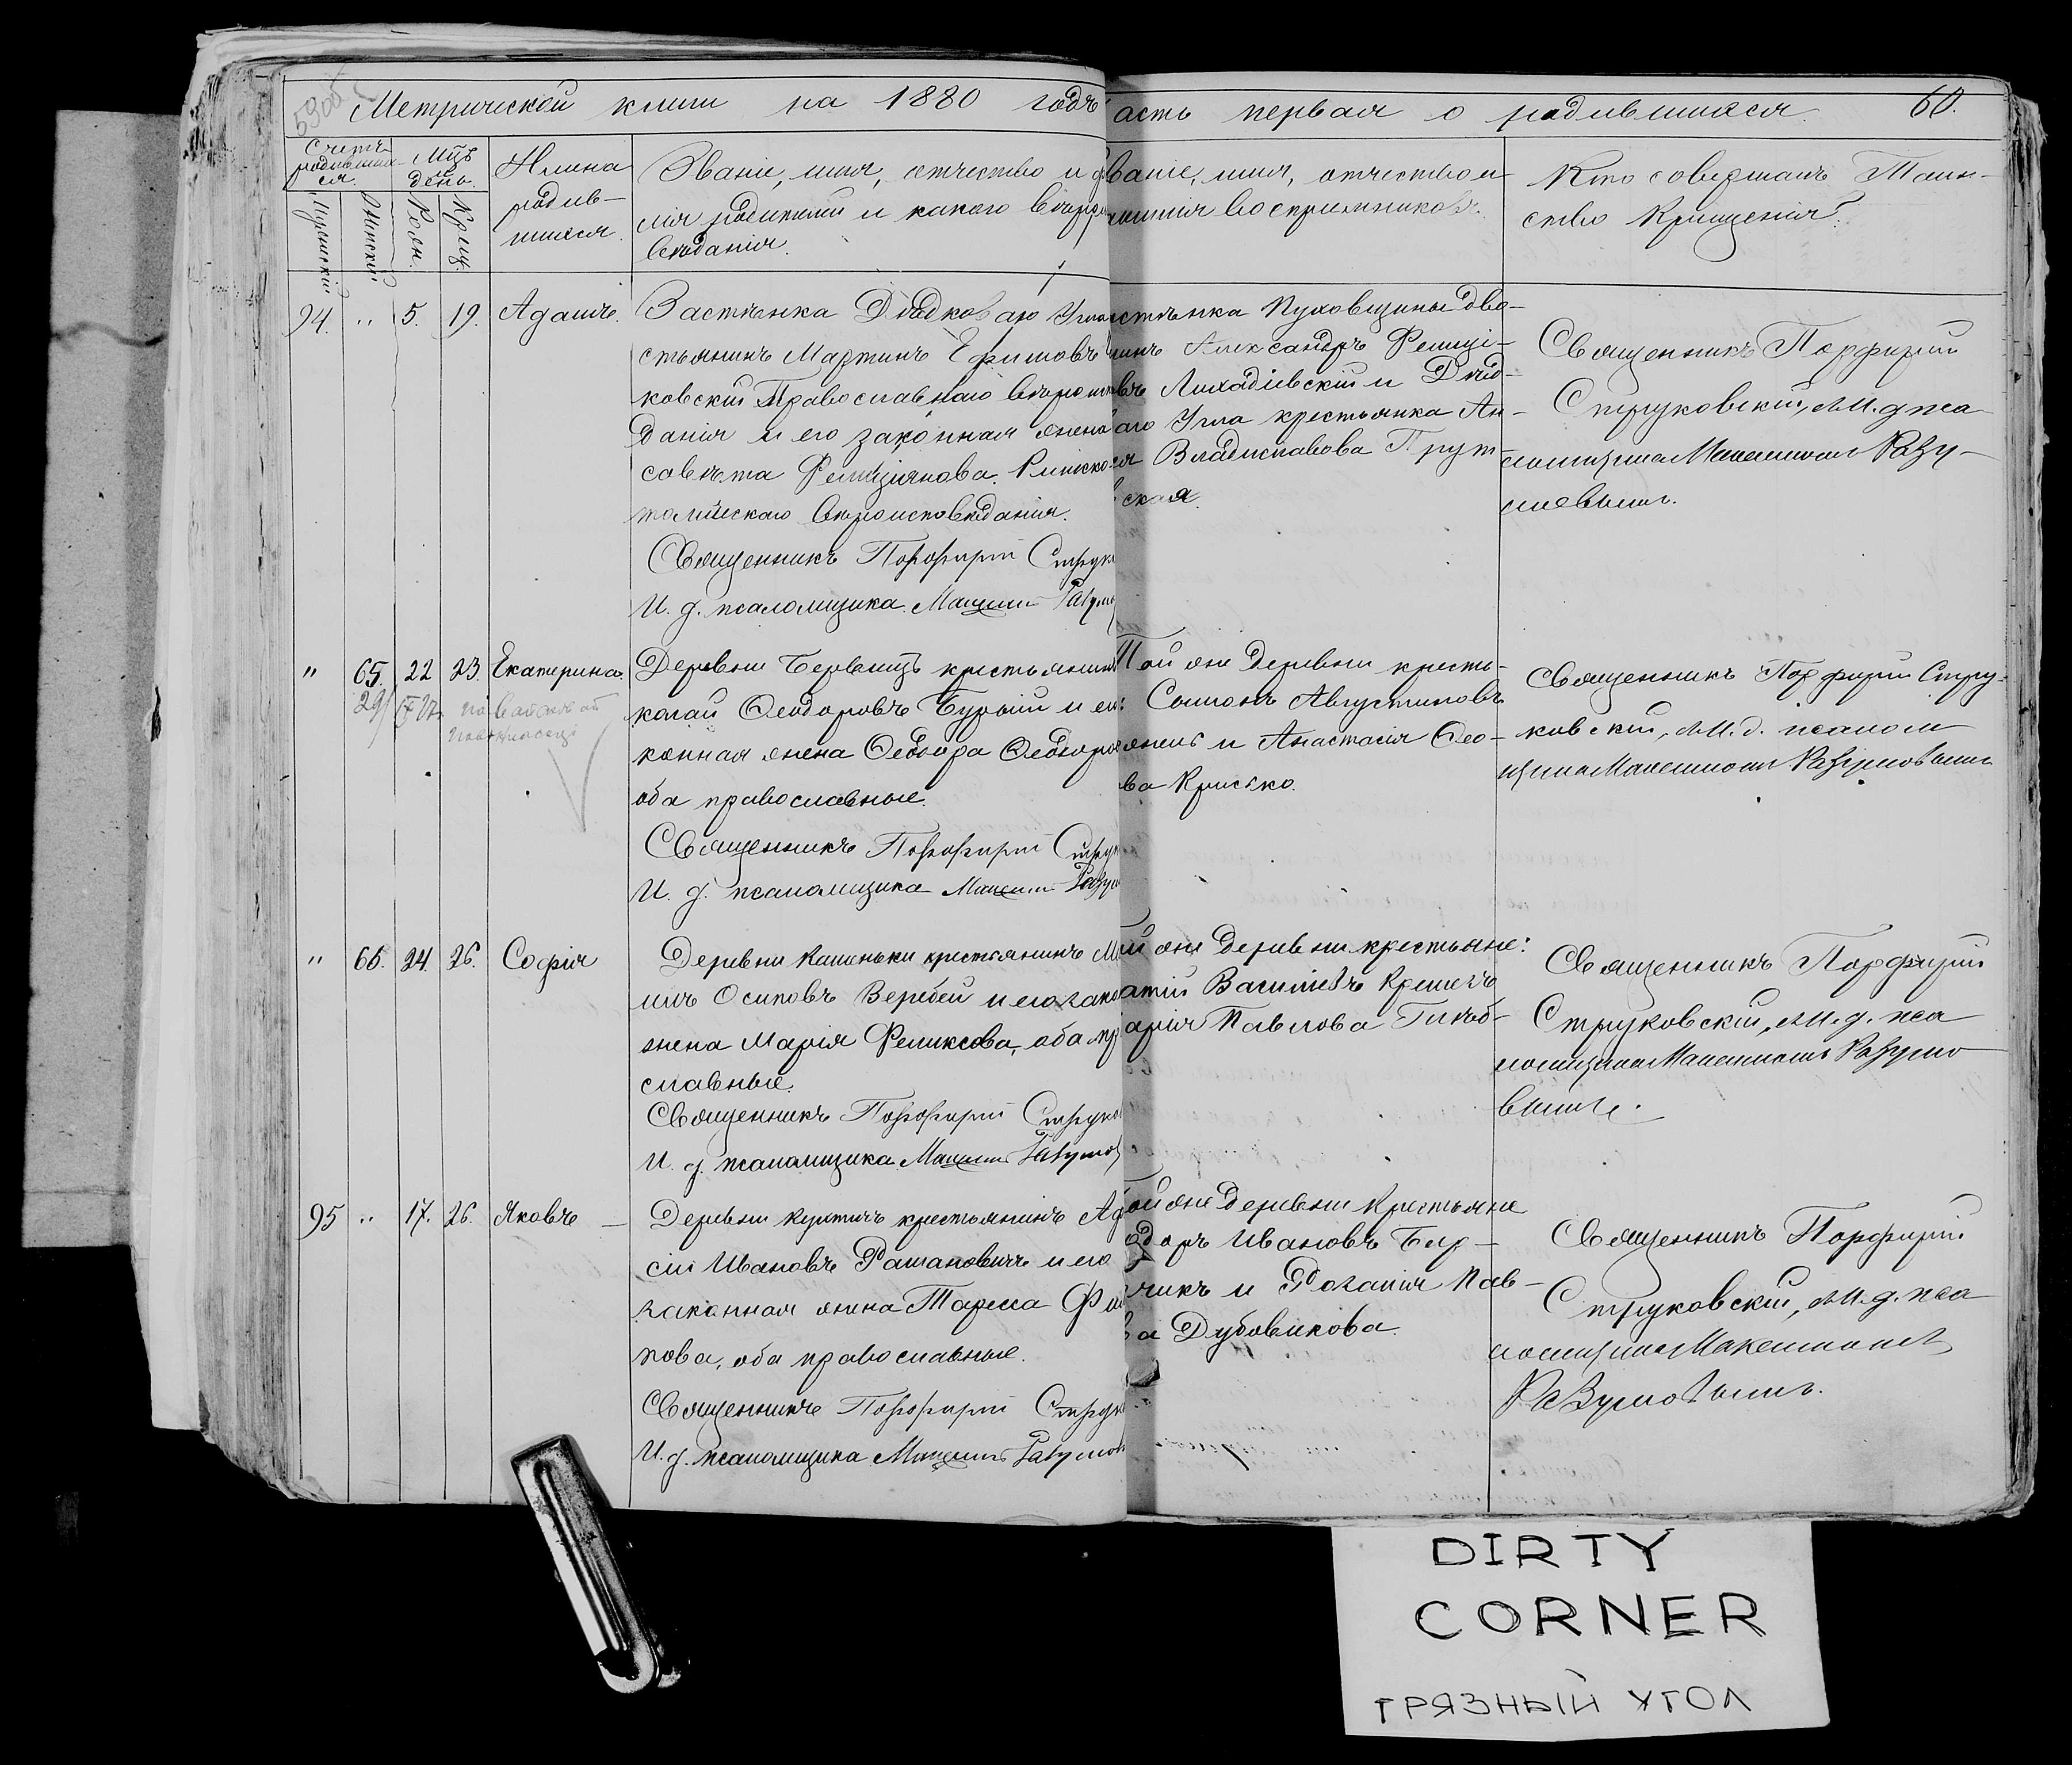 Метрической книги на 1880 годъ
асть первая о родившихся 60.
Счетъ родившихся.
Мужескій
Женскій
Мцъ и день.
Рожд.
Крещ.
Имена
родив-
шихся.
Званіе, имя, отчество и ф
лія родителей и какого вѣроис
вѣданія.
званіе, имя, отчество и
амилія воспріемниковъ.
Кто совершалъ Таин-
ство Крещенія.
94. " 5. 19. Адамъ.
Застѣнка Дѣдковаго Угла
стьянинъ Мартинъ Ефимовъ
ковскій Православнаго вѣроиспо
данія и его законная жена
савѣта Фелиціянова Римско
толическаго вѣроисповѣданія.
Священникъ Порфирій Струк
И. д. псаломщика Максимъ Разум
стѣнка Пуховщины дво-
нинъ Александръ Фелиці-
въ Лихадіевскій и Дѣд-
аго Угла крестьянка Ан-
я Владиславова Прут-
вская.
Священникъ Порфирій
Струковскій, И. д. пса
ломщика Максимомъ Разу-
мовымъ.
" 65. 22 23. Екатерина.
29/
Деревни Бервищъ крестьянинъ
колай Ѳеодоровъ Бурый и его
конная жена Ѳеодора Ѳеодоро
оба православные.
Священникъ Порфирій Струк
И. д. псаломщика Максимъ Разум
Той же деревни кресть-
Симонъ Августиновъ
и Анастасія Ѳео-
ва Крисько.
Священникъ Порфирій Стру-
ковскій, И. д. псалом
щика Максимомъ Разумовымъ
" 66. 24. 26. Софія
Деревни Каменьки крестьянинъ М
Осиповъ Веребей и его зако
жена Марія Феликсова, оба пра
славные.
Священникъ Порфирій Струко
И. д. псаломщика Максимъ Разумов
ой же деревни крестьяне:
атій Васильевъ
арія Павлова Глѣб-
Священникъ Порфирій
Струковскій, И. д. пса
ломщика Максимомъ Разумо
вымъ.
95 " 17. 26. Яковъ
Деревни Кухтичъ крестьянинъ
сій Ивановъ Рамановичъ и его
законная жена Тареса
пова, оба православные.
Священникъ Порфирій Струк
И. д. псаломщика Максимъ Разумов
ой же деревни Крестьяне
одоръ Ивановъ Бир-
чикъ и Розалія Пав-
ва Дубовикова.
Священникъ Порфирій
Струковскій, И. д. пса
ломщика Максимомъ
Разумовымъ.
DIRTY
CORNER
ГРЯЗНЫЙ УГОЛ